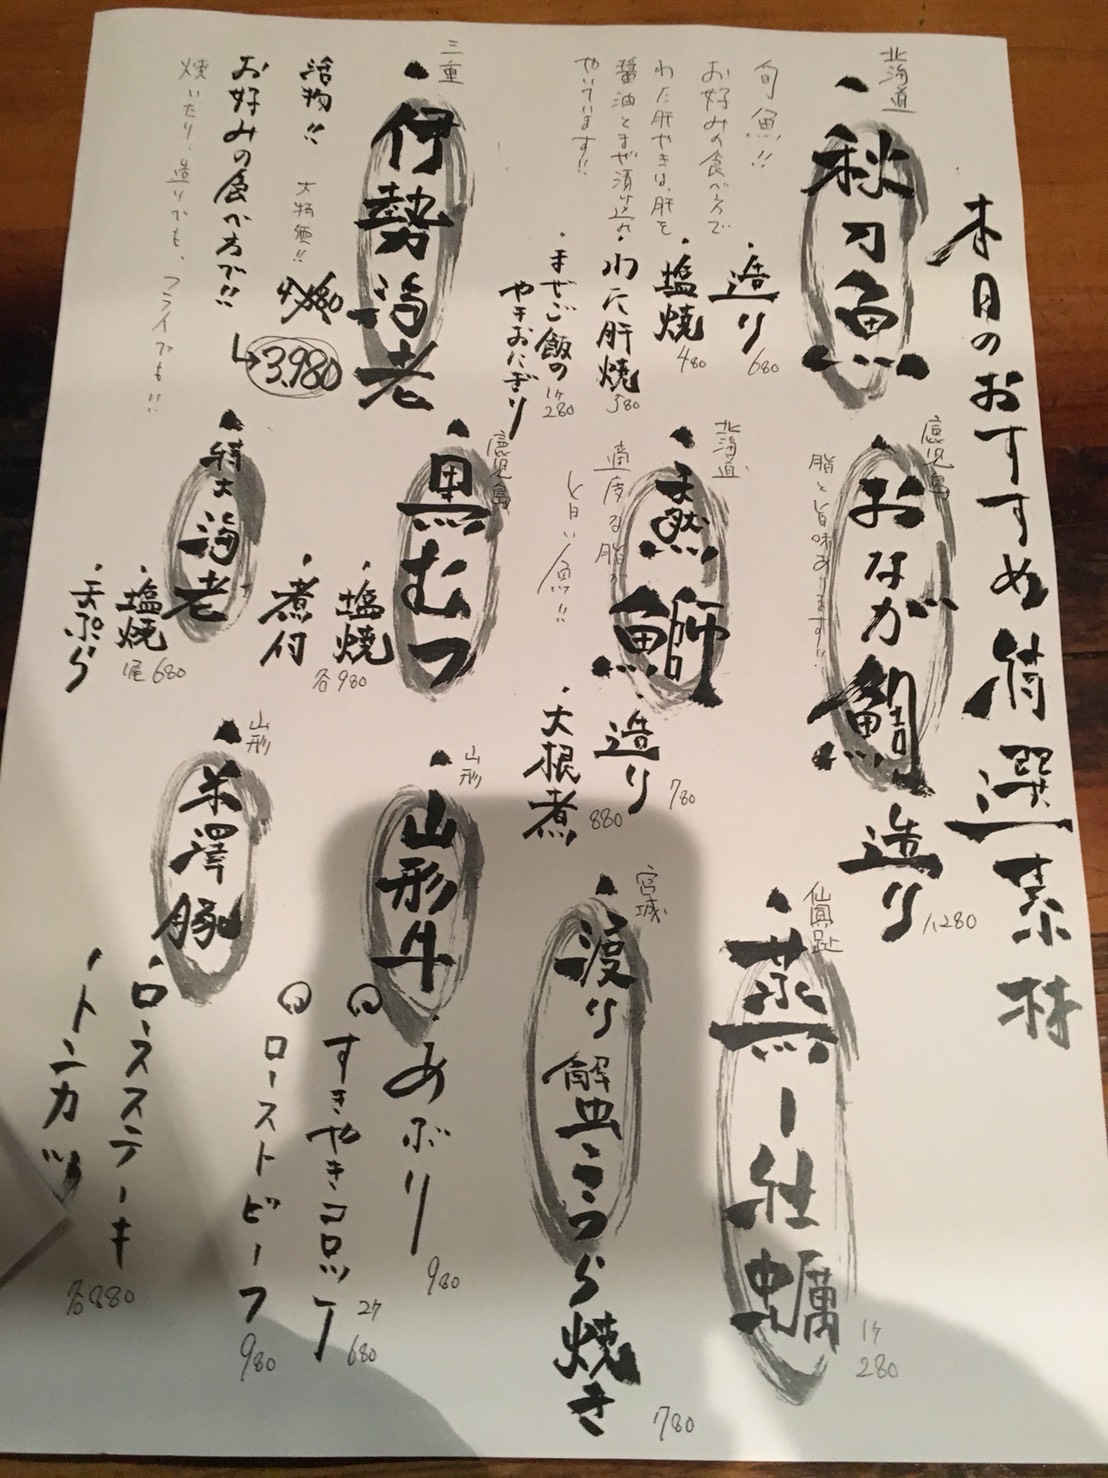 本日のおすすめ精選素材
北海道
秋刀魚
旬魚!!
お好みの食べ方で
わた肝やきは、肝を
醤油とまぜ漬け込み
やいています!!
・造り 680
・塩焼 480
・わた肝焼 580
・まぜご飯の
やきおにぎり
1ケ 280
三重
伊勢海老
活物!!
大特価!!
4,980
→3,980
お好みの食べ方で!!
焼いたり、造りでも、フライでも!!
鹿児島
おなが鯛
脂と旨味あります!!
造り 1,280
北海道
天然鰤
適度な脂が
と旨い魚!!
・造り 780
・大根煮 880
鹿児島
黒むつ
・塩焼
・煮付
各980
特大海老
・塩焼
・天ぷら
1尾 680
仙鳳趾
蒸し牡蠣
1ケ
280
宮城
渡り蟹こうら焼き
780
山形
山形牛
・あぶり 980
すきやきコロッケ
2ケ
680
ローストビーフ
980
山形
米澤豚
・ロースステーキ
・トンカツ
各880